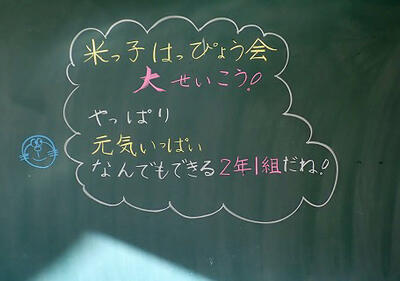 米っ子はっぴょう会
大せいこう!
やっぱり
元気いっぱい
なんでもできる2年1組だね!